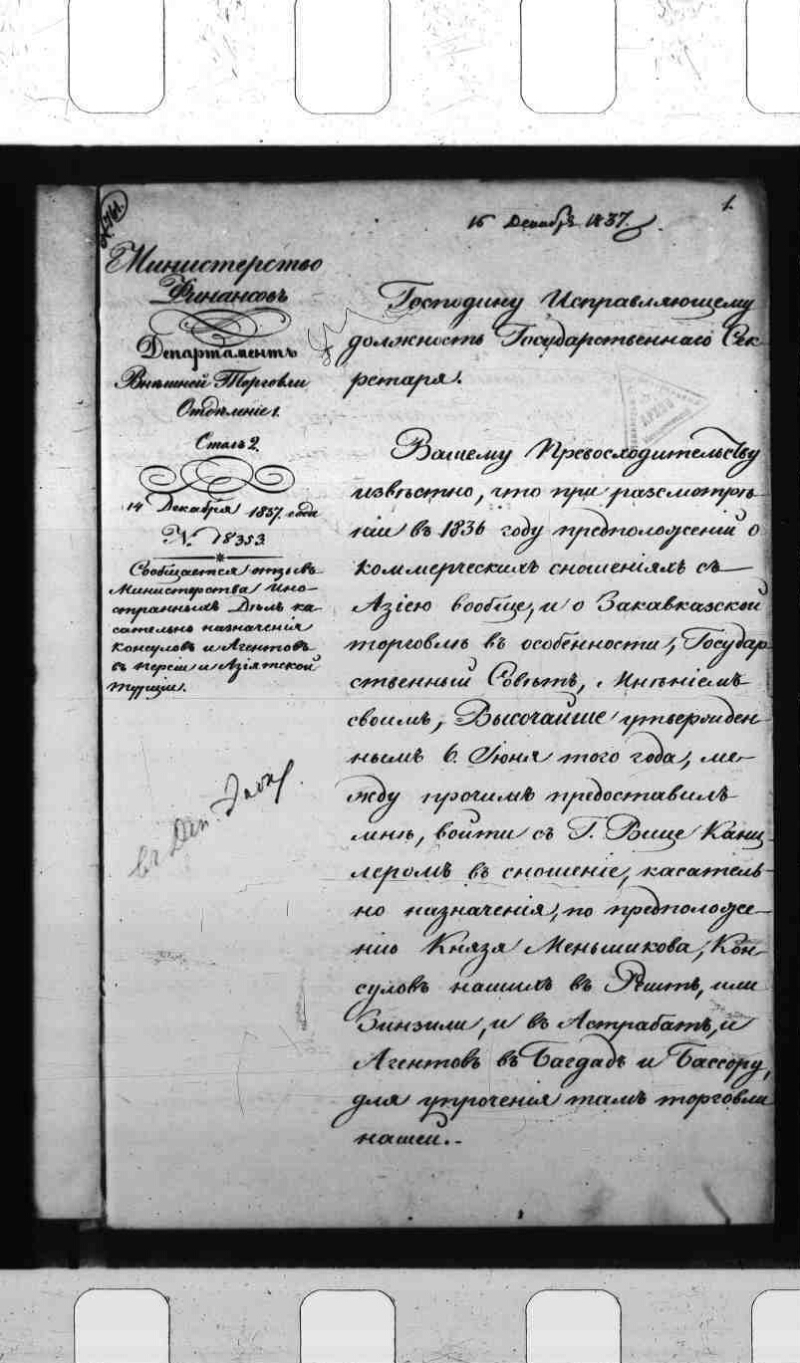 16 Декабря 1837.
1.
Министерство
Финансовъ
Департаментъ
Внѣшней Торговли
Отдѣленіе 1.
Столъ 2.
14 Декабря 1837 года
№ 18353
Сообщается отзывъ
Министерства Ино-
странныхъ Дѣлъ ка-
сательно назначенія
Консуловъ и Агентовъ
въ Персіи и Азіятской
Турціи.
Господину Исправляющему
должность Государственнаго Сек-
ретаря.
Вашему Превосходительству
извѣстно, что при разсмотрѣ-
ніи въ 1836 году предположеній о
коммерческихъ сношеніяхъ съ
Азіею вообще, и о Закавказской
торговлѣ въ особенности, Государ-
ственный Совѣтъ, Мнѣніемъ
своимъ, Высочайше утвержден-
нымъ 6 Іюня того года, ме-
жду прочимъ предоставилъ
мнѣ, войти съ Г. Вице Канц-
леромъ въ сношеніе, касатель-
но назначенія, по предположе-
нію Князя Меньшикова, Кон-
суловъ нашихъ въ Рештѣ, или
Зинзили, и въ Астрабатѣ, и
Агентовъ въ Багдадъ и Бассору,
для упроченія тамъ торговли
нашей.